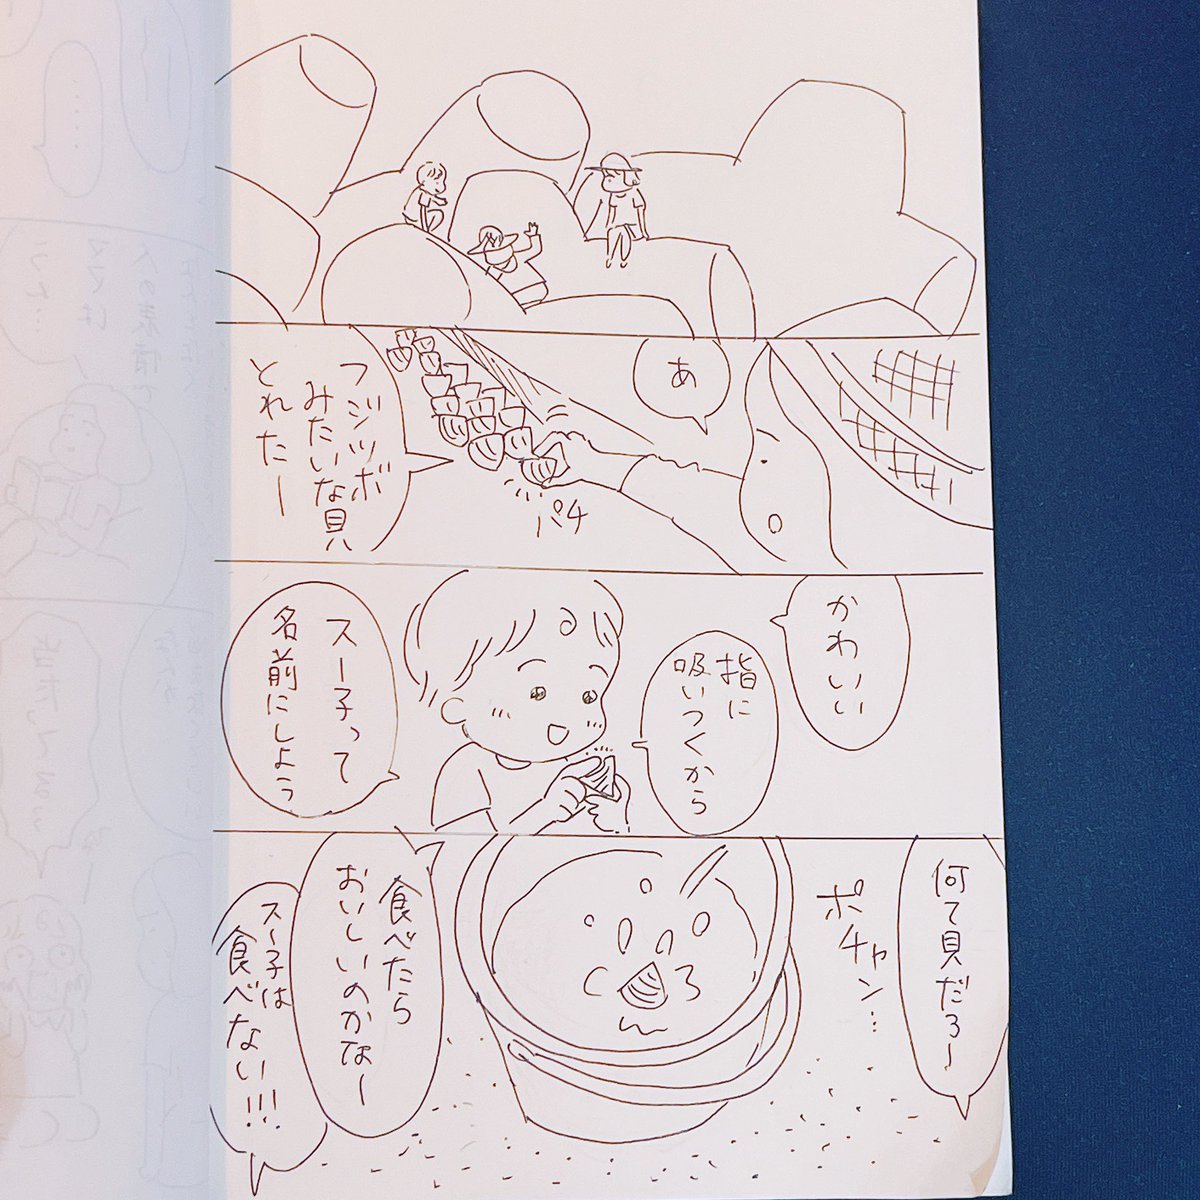 あ
パチ
フジツボ
みたいな貝
とれたー
かわいい
指に
吸いつくから
スー子って
名前にしよう
何て貝だろ〜
ポチャン…
食べたら
おいしいのかなー
スー子は
食べない!!!